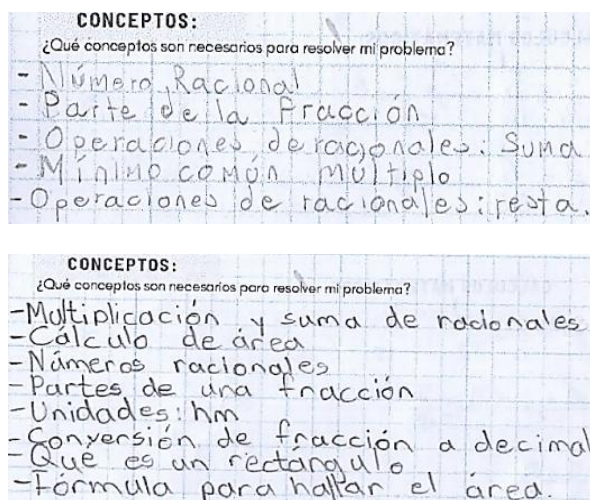 CONCEPTOS:
¿Qué conceptos son necesarios para resolver mi problema?
- Número Racional
- Parte de la Fracción
- Operaciones de racionales: Suma
- Mínimo común múltiplo
- Operaciones de racionales: resta.
CONCEPTOS:
¿Qué conceptos son necesarios para resolver mi problema?
- Multiplicación y suma de racionales
- Cálculo de área
- Números racionales
- Partes de una fracción
- Unidades: hm
- Conversión de fracción a decimal
- Qué es un rectángulo
- Fórmula para hallar el área